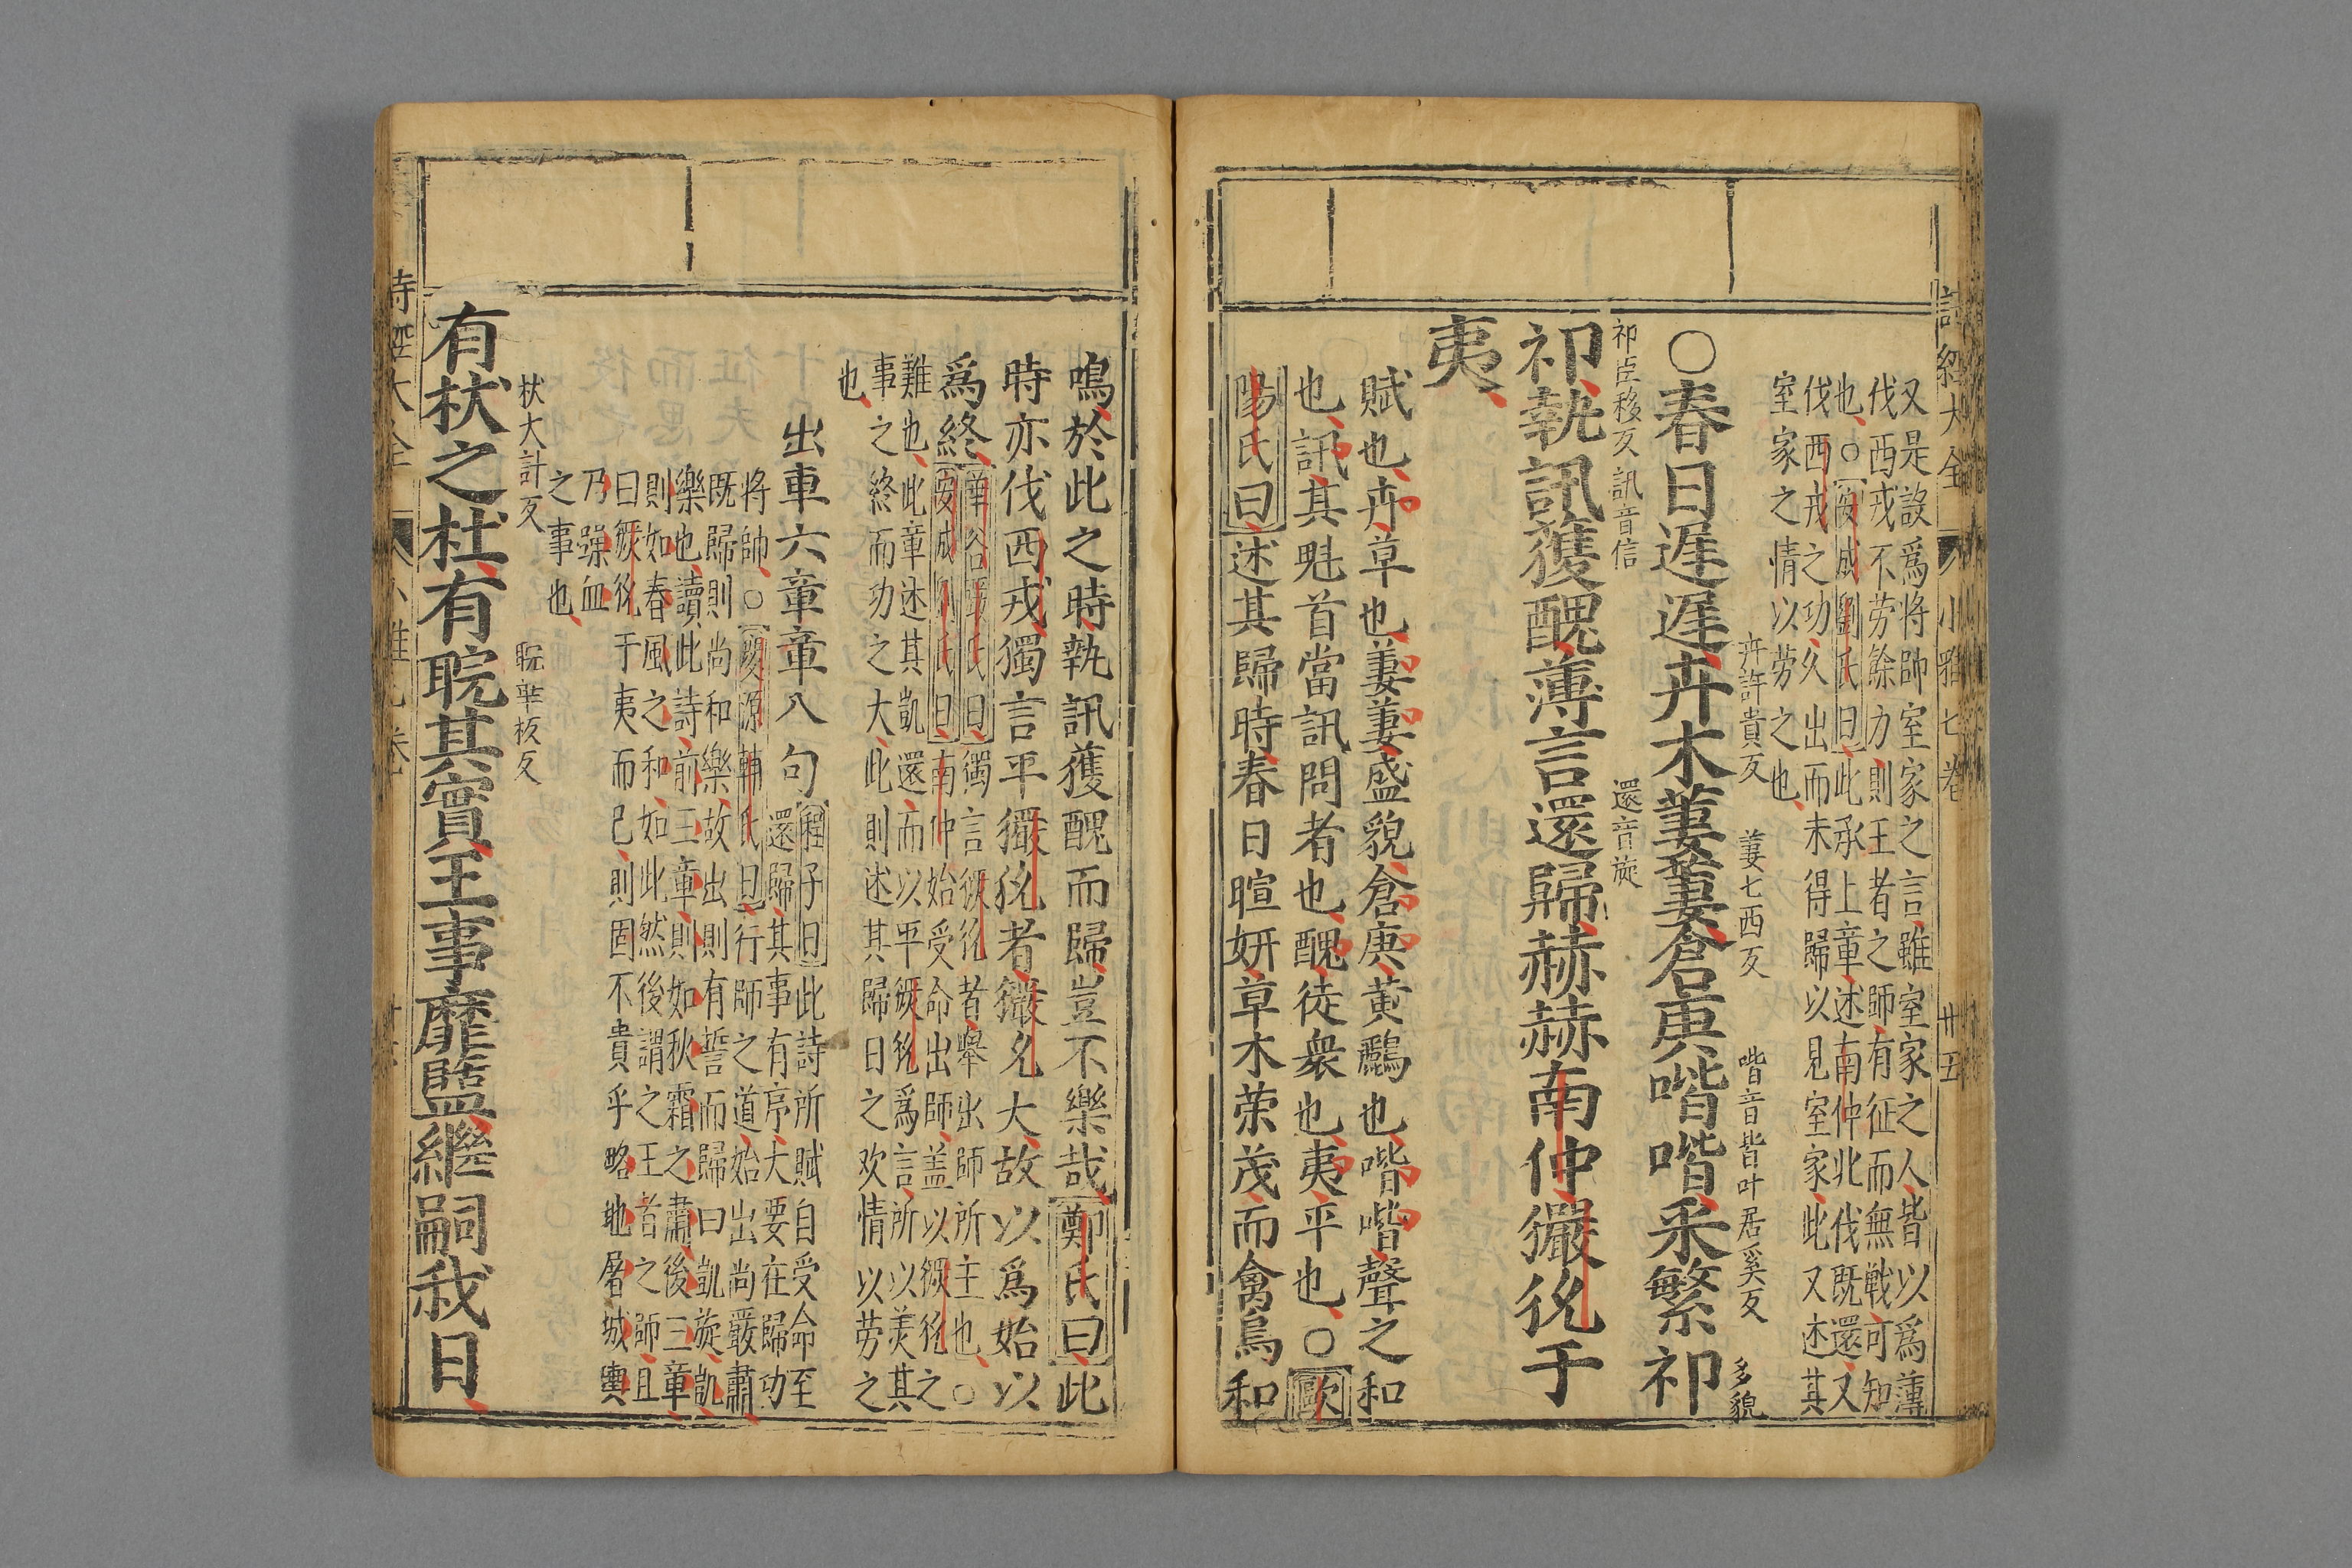 詩經大全
小雅七卷
卅五
又是設爲将帥室家之言雖室家之人皆以爲薄
伐西戎不劳餘力則王者之師有征而無戦可知
也○安成劉氏曰此承上章述南仲北伐既還又
伐西戎之功久出而未得歸以見室家此又述其
室家之情以劳之也
卉許貴反 萋七西反 喈音皆叶居奚反 多貌
○春日遲遲卉木萋萋倉庚喈喈采繁祁
祁臣移反 訊音信 還音旋
祁執訊獲醜薄言還歸赫赫南仲玁狁于
夷
賦也卉草也萋萋盛貌倉庚黄鸝也喈喈聲之和
也訊其魁首當訊問者也醜徒衆也夷平也○歐
陽氏曰述其歸時春日暄妍草木荣茂而禽鳥和
鳴於此之時執訊獲醜而歸豈不樂哉鄭氏曰此
時亦伐西戎獨言平玁狁者玁狁大故以爲始以
爲終華谷嚴氏曰獨言玁狁者舉出師所主也○
安成劉氏曰南仲始受命出師盖以玁狁之
難也此章述其凱還而以平玁狁爲言所以羙其
事之終而功之大此則述其歸日之欢情以劳之
也
出車六章章八句
程子曰此詩所賦自受命至
還歸其事有序大要在歸功
将帥○慶源輔氏曰行師之道始出尚嚴肅
既歸則尚和樂故出則有誓而歸曰凱旋凱
樂也讀此詩前三章則如秋霜之肅後三章
則如春風之和如此然後謂之王者之師且
曰玁狁于夷而已則固不貴乎略地屠城輿
乃蹀血
之事也
杕大計反 睆華板反
有杕之杜有睆其實王事靡盬繼嗣我日
詩經大全